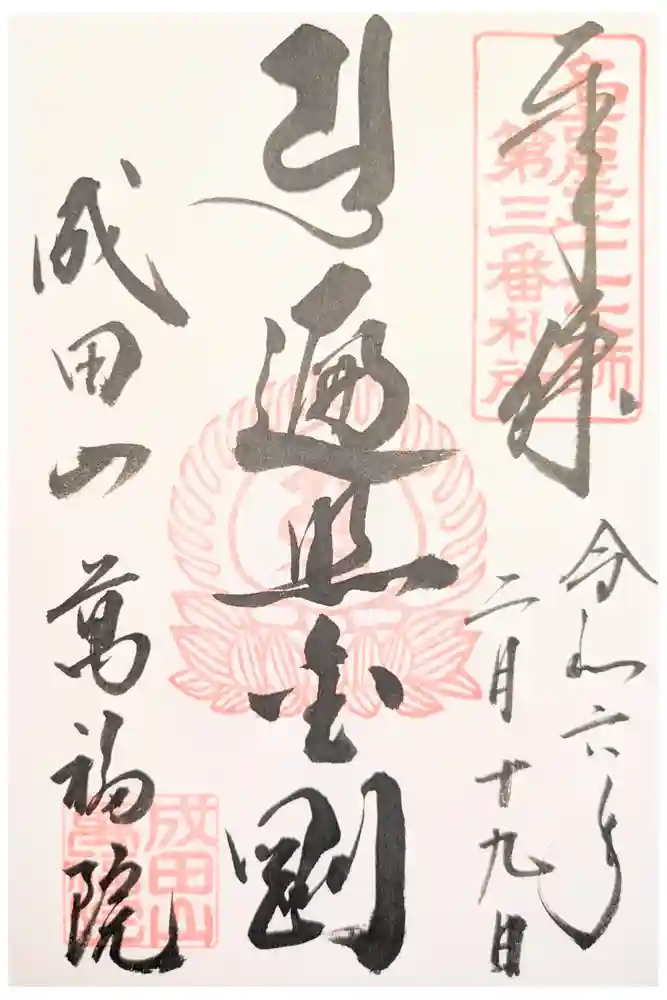 奉拝
名古屋二十一大師
第三番札所
令和六年
二月十九日
遍照金剛
成田山 萬福院
成田山
萬福院